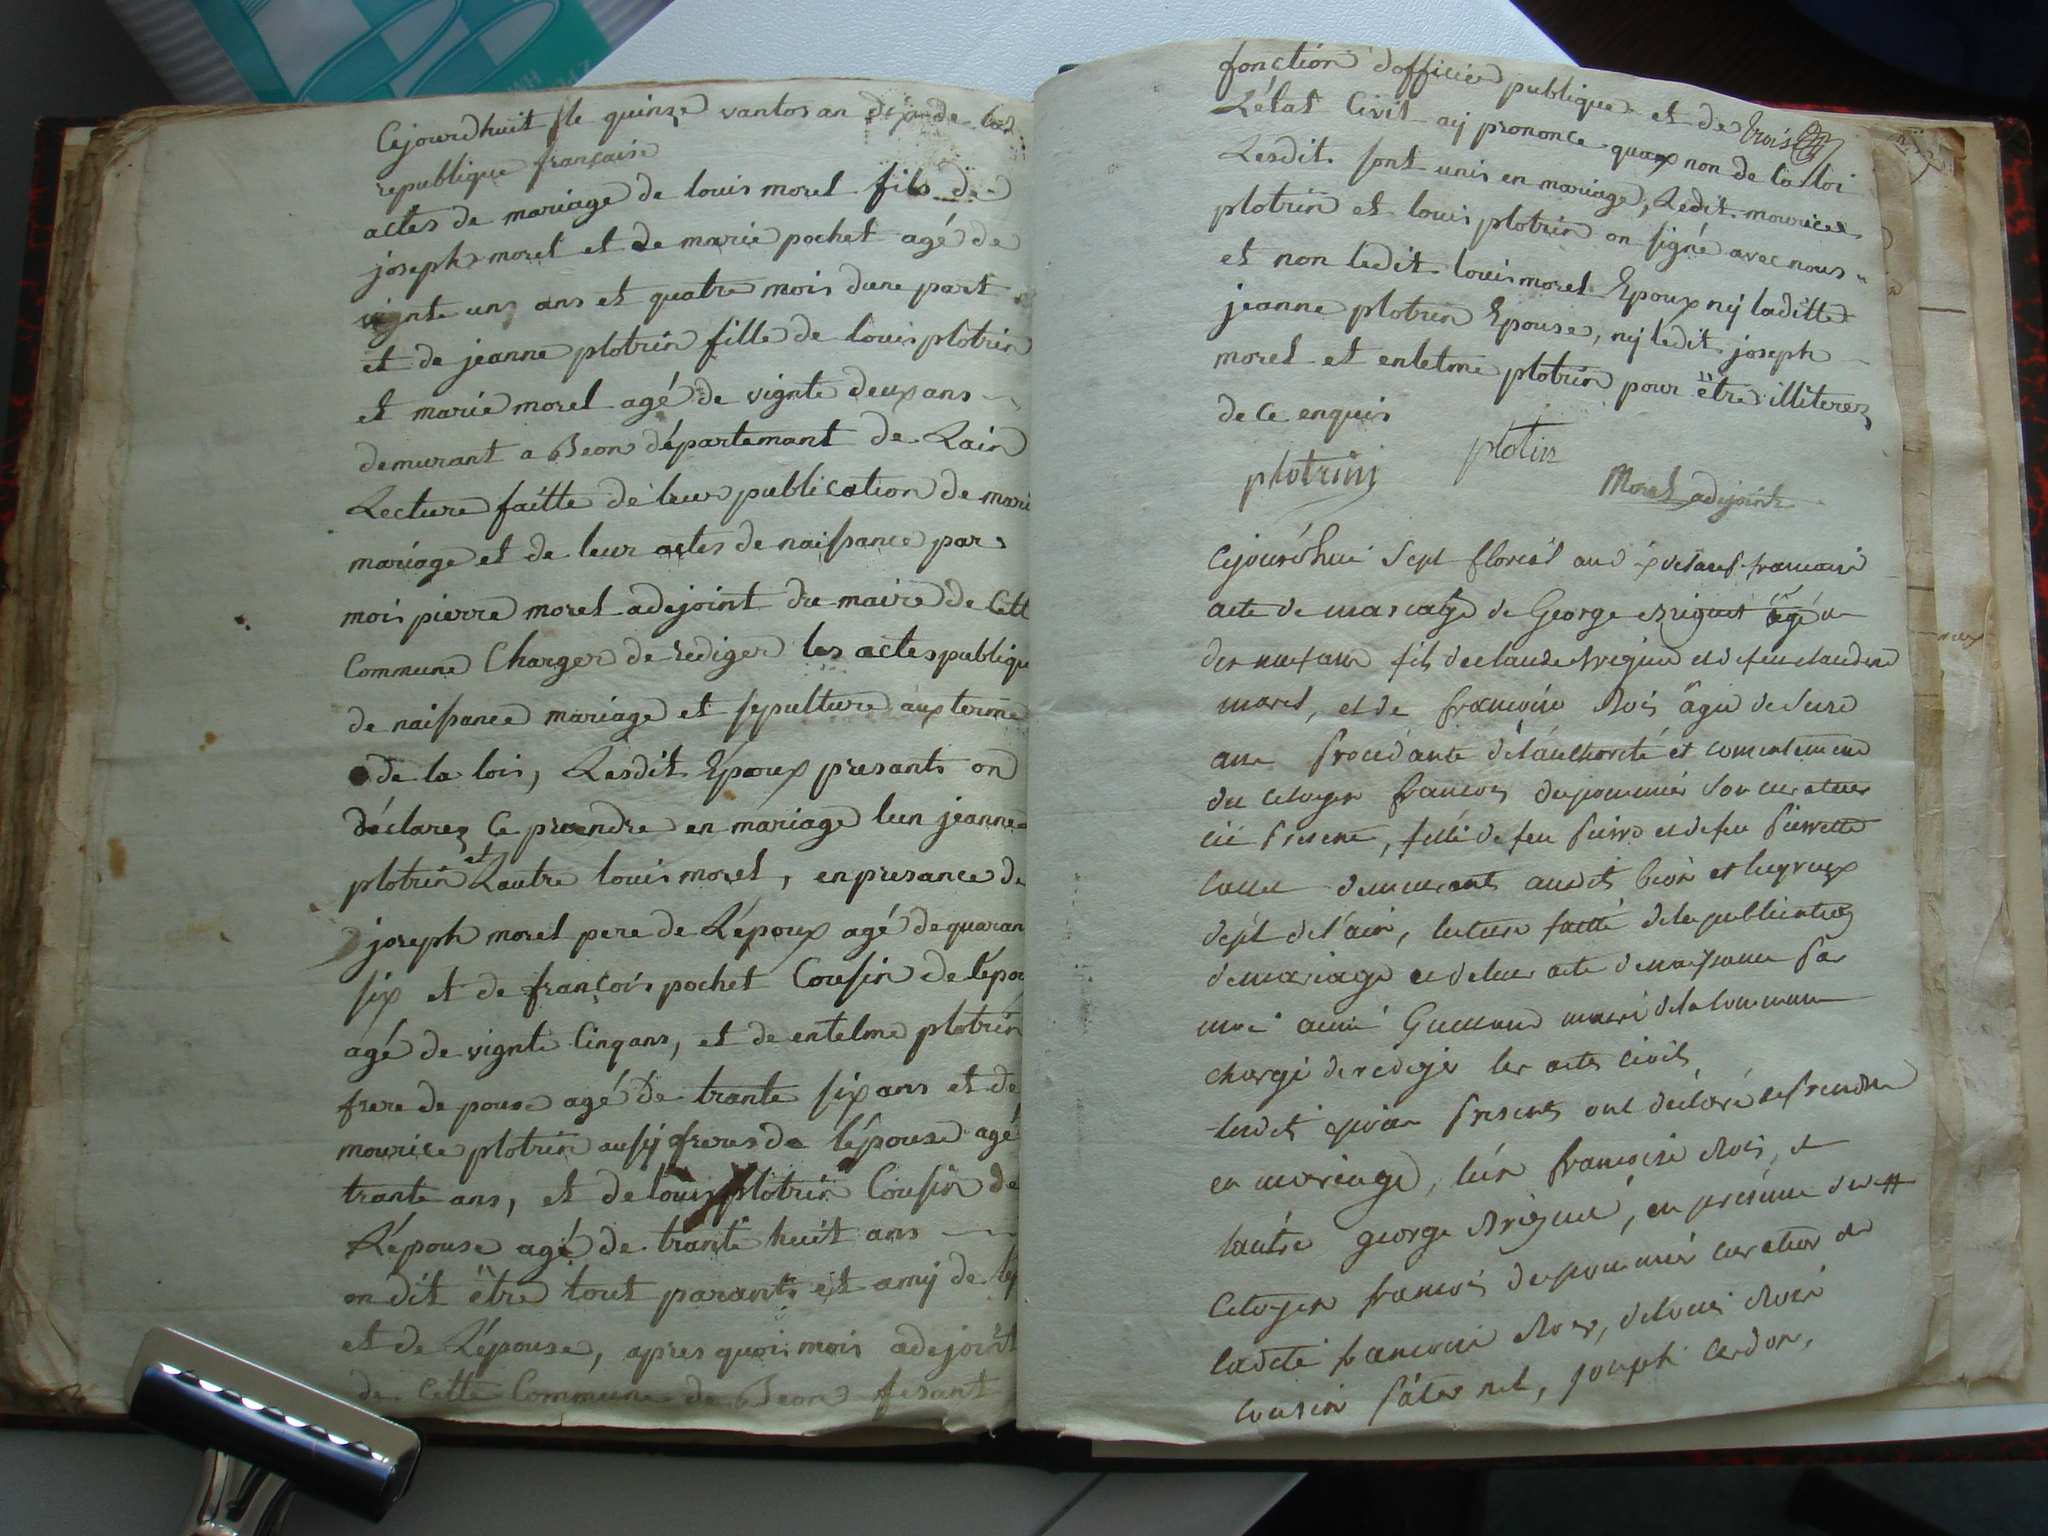 Cejourdhuit le quinze vantos an dix de la
republique française
actes de mariage de louis morel fils de
joseph morel et de marie pochet agé de
vignte uns ans et quatre mois dune part
et de jeanne plotrin fille de louis plotrin
et marie morel agé de vignte deux ans
demurant a Beon département de Lain
Lecture faitte de leur publication de mari
mariage et de leur actes de naissance par
moi pierre morel adejoint du maire de Cett
Commune Charger de rediger les actes publique
de naissance mariage et sepulture aux terme
de la lois, Lesdit Epoux presants on
déclarez Ce prendre en mariage lun jeanne
plotrin et Lautre louis morel, en presance de
joseph morel pere de Lépoux agé de quaran
six et de françois pochet Cousin de lépou
agé de vignte Cinq ans, et de entelme plotrin
frere de pouse agé de trante six ans et de
mourice plotrin aussy freres de lépouse agé
trante ans, et de louis plotrin Cousin de
Lépouse agé de trante huit ans
on dit être tout parants et amy de
et de Lépouse, apres quoi mois adejoint
de Cette Commune de Beon fesant
fonction dofficier publique et de trois
Létat Civil ay prononce quax non de la loi
Lesdit sont unis en mariage, Ledit mourice
plotrin et louis plotrin on signé avec nous
et non ledit louis morel Epoux ny laditte
jeanne plotrin Epouse, ny ledit joseph
morel et entelme plotrin pour être illiterez
de Ce enquis
plotrin plotin
Morel adejoint
Cejourdhui Sept floreal an
acte de mariage de George agé de
dix neuf ans fils de claude et de feu claudine
morel, et de francoise Rois âgée de seize
ans Procédante de l'authorité et consentement
du Citoyen francois dupommier son curateur
ici Present, fille de feu Pierre et de feu Pierrette
demeurants audit beon et
dépt de l'ain, lecture faitte de la publication
de mariage et de leur acte de naissance Par
moi aimé maire de la Commune
chargé de rediger les actes civils
lesdits epoux Presents ont déclaré se Prendre
en mariage, l'un francoise Rois, et
lautre george, en presence du
Citoyen francois dupommier curateur de
ladite francoise Rois, de louis Rois
cousin Paternel, joseph Cardon,